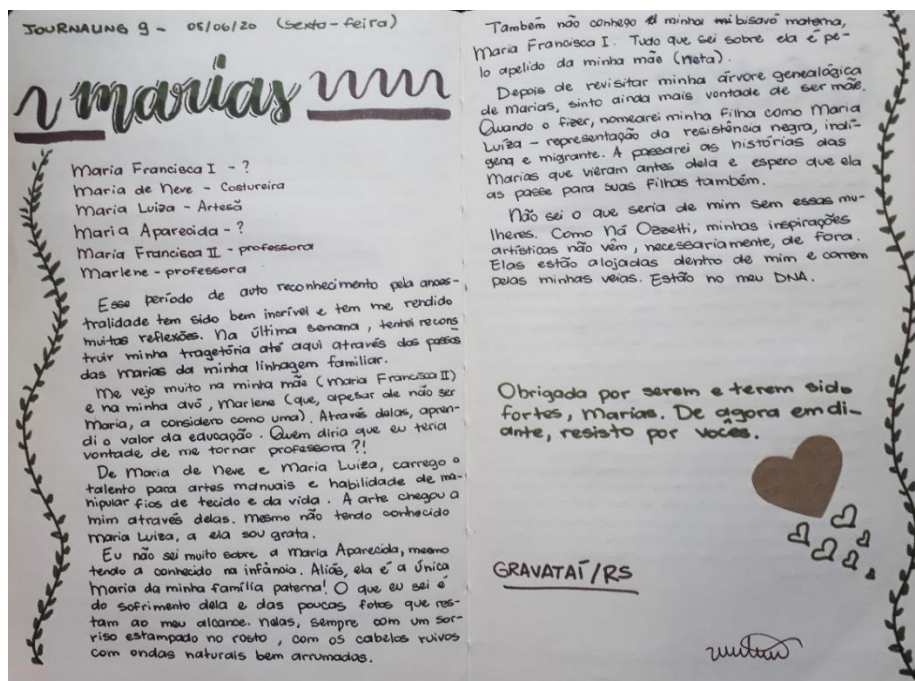 JOURNALING 9 - 05/06/20 (sexta-feira)
marias
Maria Francisca I - ?
Maria de Neve - Costureira
Maria Luiza - Artesã
Maria Aparecida - ?
Maria Francisca II - professora
Marlene - professora
Esse período de auto reconhecimento pela ances-
tralidade tem sido bem incrível e tem me rendido
muitas reflexões. Na última semana, tentei recons
truir minha tragetória até aqui através dos passos
das Marias da minha linhagem familiar.
Me vejo muito na minha mãe (Maria Francisca II)
e na minha avó, Marlene (que, apesar de não ser
Maria, a considero como uma). Através delas, apren-
di o valor da educação. Quem diria que eu teria
vontade de me tornar professora?!
De Maria de Neve e Maria Luiza, carrego o
talento para artes manuais e habilidade de ma-
nipular fios de tecido e da vida. A arte chegou a
mim através delas. Mesmo não tendo conhecido
Maria Luiza, a ela sou grata.
Eu não sei muito sobre a Maria Aparecida, mesmo
tendo a conhecido na infância. Aliás, ela é a única
Maria da minha família paterna! O que eu sei é
do sofrimento dela e das poucas fotos que res-
tam ao meu alcance. Nelas, sempre com um sor-
riso estampado no rosto, com os cabelos ruivos
com ondas naturais bem arrumadas.
Também não conheço minha bisavó materna,
Maria Francisca I. Tudo que sei sobre ela é pe-
lo apelido da minha mãe (Neta).
Depois de revisitar minha árvore genealógica
de Marias, sinto ainda mais vontade de ser mãe.
Quando o fizer, nomearei minha filha como Maria
Luiza - representação da resistência negra, indí-
gena e migrante. A passarei as histórias das
Marias que vieram antes dela e espero que ela
as passe para suas filhas também.
Não sei o que seria de mim sem essas mu-
lheres. Como Ná Ozzetti, minhas inspirações
artísticas não vêm, necessariamente, de fora.
Elas estão alojadas dentro de mim e correm
pelas minhas veias. Estão no meu DNA.
Obrigada por serem e terem sido
fortes, Marias. De agora em di-
ante, resisto por vocês.
GRAVATAÍ/RS